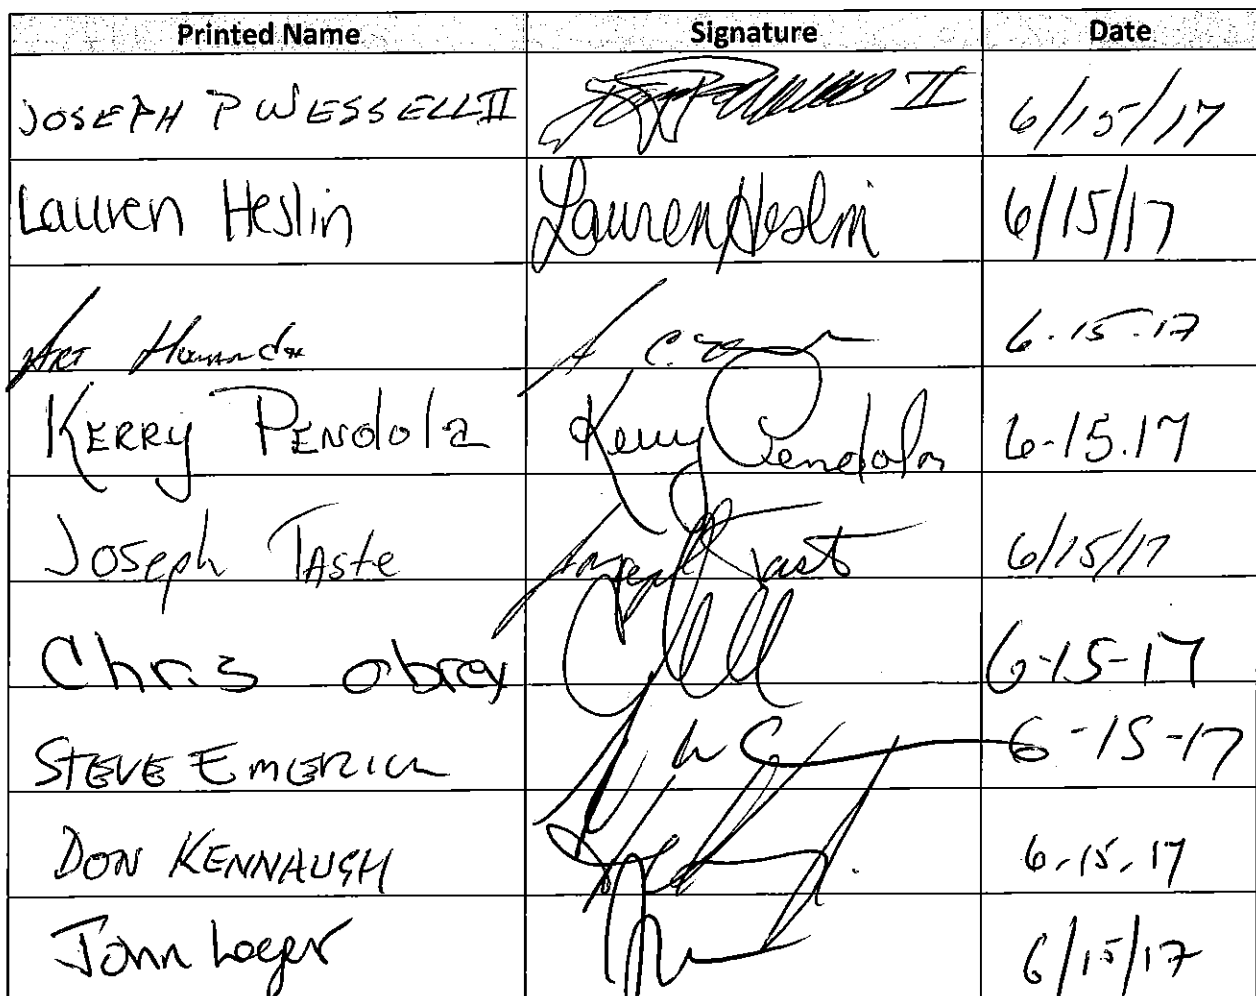 Printed Name Signature Date
JOSEPH P WESSELL II II 6/15/17
Lauren Heslin Lauren Heslin 6/15/17
ART 6.15.17
KERRY PENdola Kerry Pendola 6-15.17
Joseph TAste Joseph Tast 6/15/17
Chris obrey 6-15-17
STEVE EMERICK 6-15-17
DON KENNAUGH 6.15.17
John 6/15/17